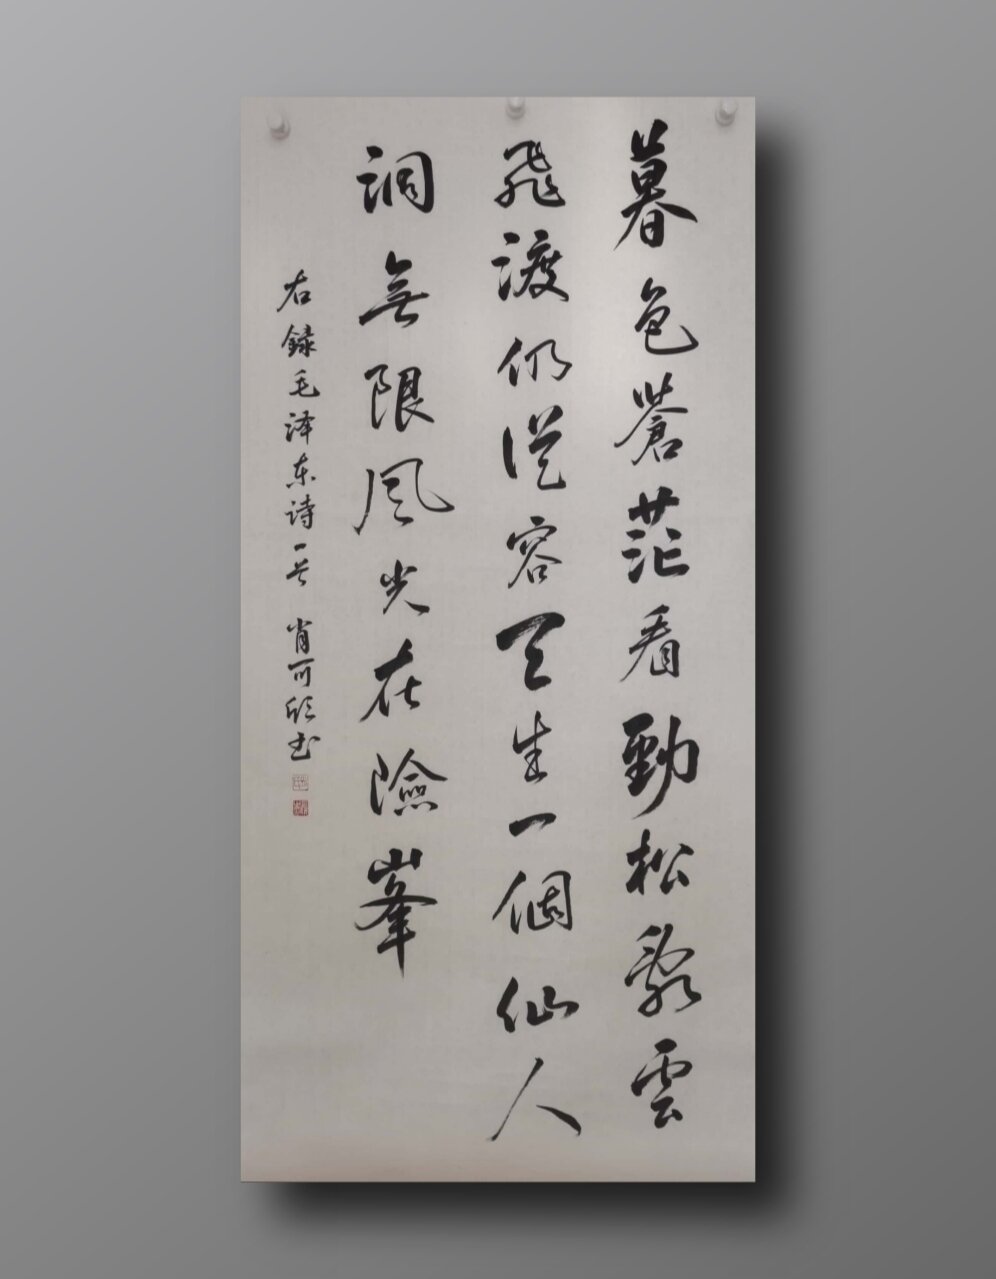 暮色蒼茫看勁松亂雲
飛渡仍從容天生一個仙人
洞無限風光在險峯
右録毛泽东诗一首 肖可欣书